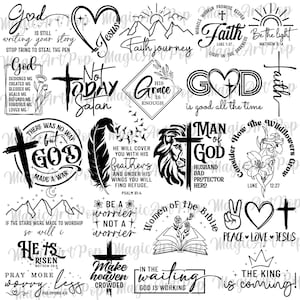 God
is still
writing your story
STOP TRYING TO STEAL THE PEN
Jesus
Faith journey
Faith
LUKE 1:37
Be the light
MATTHEW 5:14
God
DESIGNED ME
CREATED ME
BLESSES ME
HEALS ME
DEFENDS ME
FORGIVES ME
LOVES ME
Not
Today
Satan
Grace
GOD
is good all the time
faith
THERE WAS NO WAY
but
GOD
MADE A WAY
HE WILL
COVER YOU
WITH HIS
feathers
AND UNDER HIS
WINGS YOU WILL
FIND REFUGE
PSALM 91:4
MAN of
GOD
HUSBAND
DAD
PROTECTOR
HERO
Consider How the Wildflowers Grow
LUKE
12:27
IF THE STARS WERE MADE TO WORSHIP
so will I
HE IS
RISEN
BE A
warrior
NOT A
worrier
Women of the Bible
PEACE LOVE JESUS
PRAY MORE
worry less
Make
heaven
CROWDED
IN THE
waiting
GOD IS WORKING
THE KING
is coming